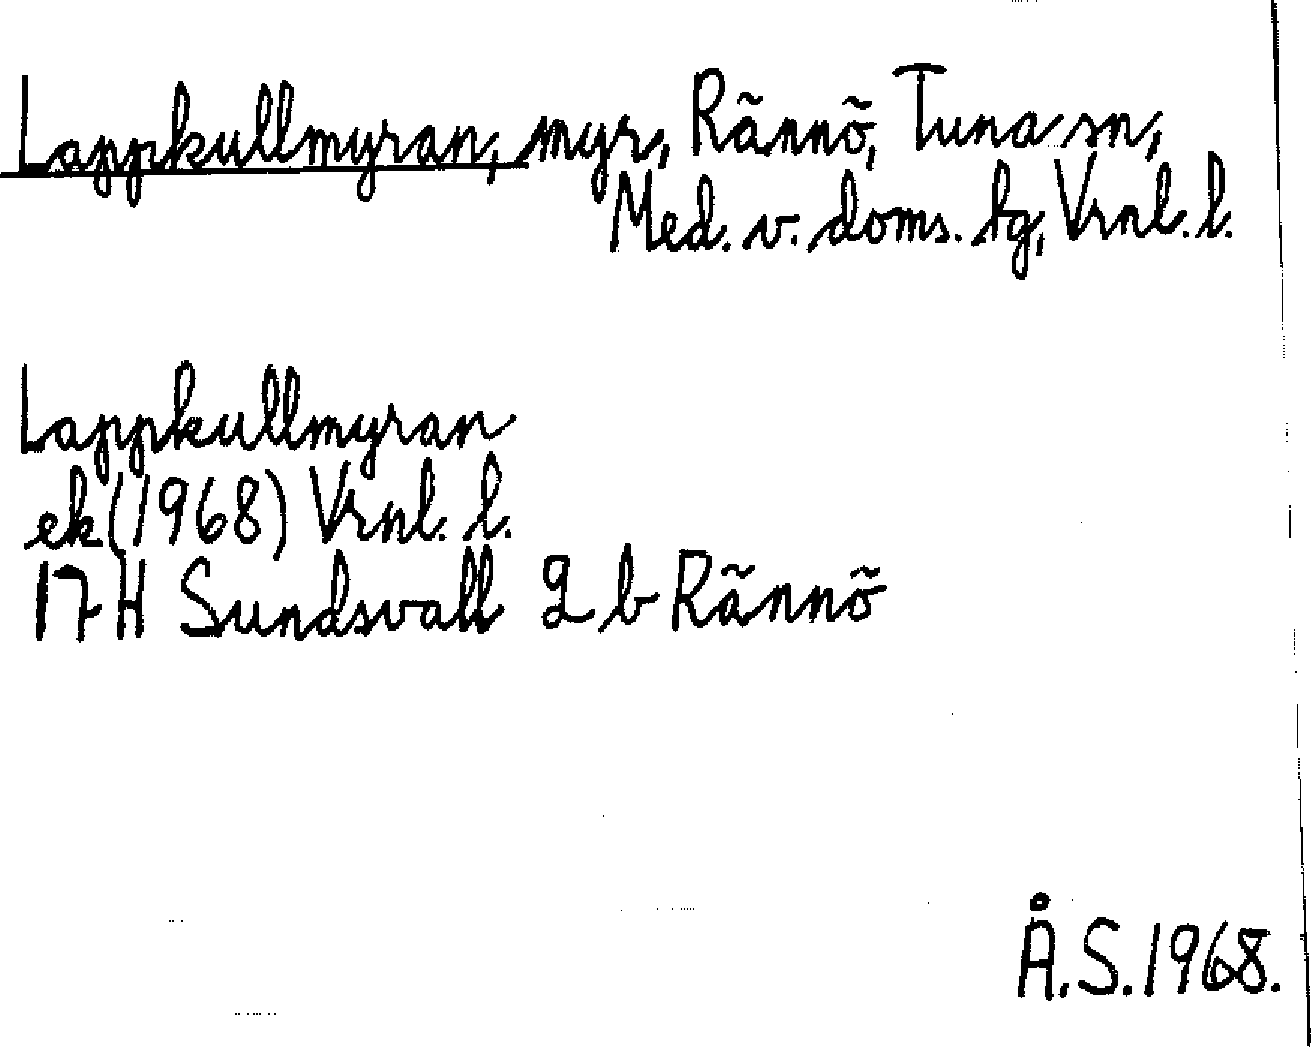 Lappkullmyran, myr, Rännö, Tuna sn,
Med. v. doms. tg, Vrnl. l.
Lappkullmyran
ek (1968) Vrnl. l.
17 H Sundsvall 2 b Rännö
Å.S. 1968.